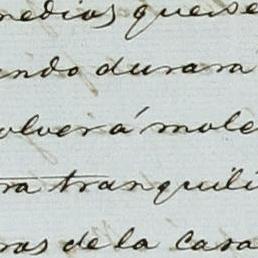 medios que se
endo durara
olverá mole
ra tranquili
ras de la casa